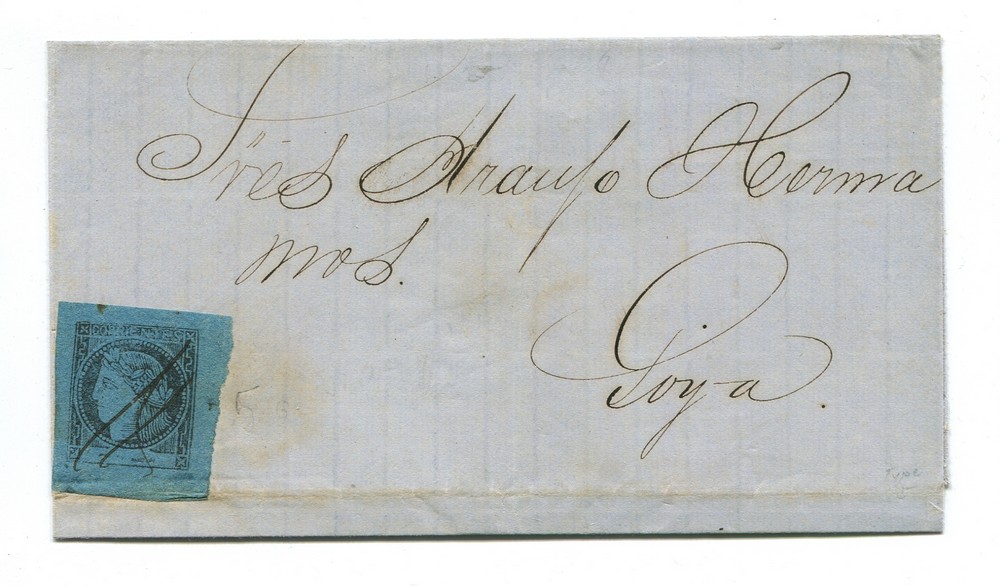 Sres Araujo Herma
nos.
Goya.
CORRIENTES
5
Type